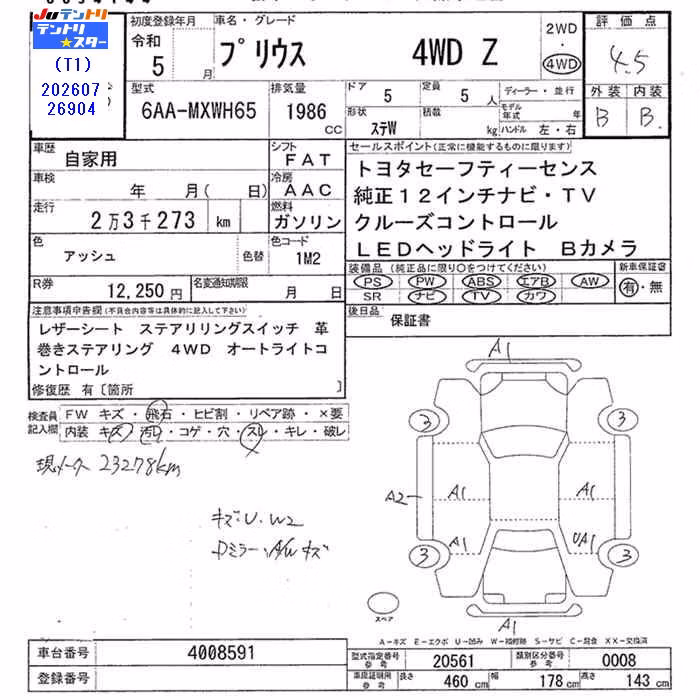 JUテントリ
テントリ★スター
(T1)
202607
26904
初度登録年月
令和
5 月
車名・グレード
プリウス 4WD Z
2WD
・
4WD
評価点
4.5
外装 内装
B B
型式
6AA-MXWH65
排気量
1986
cc
ドア
5
定員
5 人
形状
ステW
積数
kg
ディーラー・並行
モデル年式 年
ハンドル 左・右
車歴
自家用
シフト
FAT
車検
年 月( 日)
冷房
AAC
走行
2万3千273 km
燃料
ガソリン
色
アッシュ
色替
色コード
1M2
R券
12,250円
名変通知期限
月 日
セールスポイント(正常に機能するものに限ります)
トヨタセーフティーセンス
純正12インチナビ・TV
クルーズコントロール
LEDヘッドライト Bカメラ
装備品(純正品に限り○をつけてください)
PS PW ABS エアB AW
SR ナビ TV カワ
新車保証書
有・無
後日品
保証書
注意事項申告欄(不具合内容等は具体的に記入して下さい)
レザーシート ステアリリングスイッチ 革
巻きステアリング 4WD オートライトコ
ントロール
修復歴 有〔箇所 〕
検査員
記入欄
FW キズ・飛石・ヒビ割・リペア跡・×要
内装 キズ・汚れ・コゲ・穴・スレ・キレ・破レ
現メーター 23278km
キズ・U・W2
Dミラー・A/Wキズ
A1
3 3
A2
A1 A1
A1 UA1
3 3
A1
スペア
A-キズ E-エクボ U-凹み W-補修跡 S-サビ C-腐食 XX-交換済
車台番号
4008591
登録番号
型式指定番号
参考
20561
類別区分番号
参考
0008
車庫証明用
参考
長さ
460 cm
幅
178 cm
高さ
143 cm